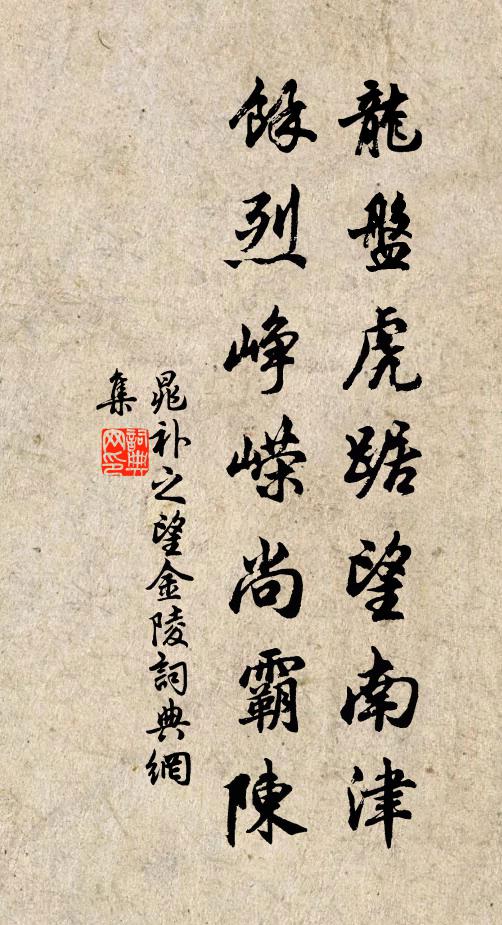 龍盤虎踞望南津
餘烈崢嶸尚霸陳
晁补之望金陵詞典網
集
詞典网印